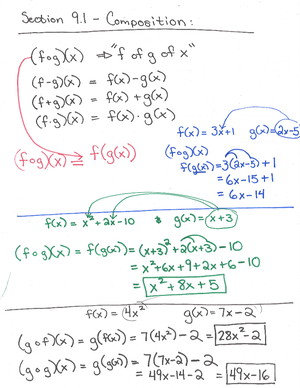 Section 9.1 - Composition:
(f∘g)(x) ⇒ "f of g of x"
(f-g)(x) = f(x) - g(x)
(f+g)(x) = f(x) + g(x)
(f·g)(x) = f(x) · g(x)
(f∘g)(x) = f(g(x))
f(x) = 3x+1 g(x) = 2x-5
(f∘g)(x)
f(g(x)) = 3(2x-5)+1
= 6x-15+1
= 6x-14
f(x) = x²+2x-10 & g(x) = x+3
(f∘g)(x) = f(g(x)) = (x+3)²+2(x+3)-10
= x²+6x+9+2x+6-10
= x²+8x+5
f(x) = 4x² g(x) = 7x-2
(g∘f)(x) = g(f(x)) = 7(4x²)-2 = 28x²-2
(g∘g)(x) = g(g(x)) = 7(7x-2)-2
= 49x-14-2 = 49x-16